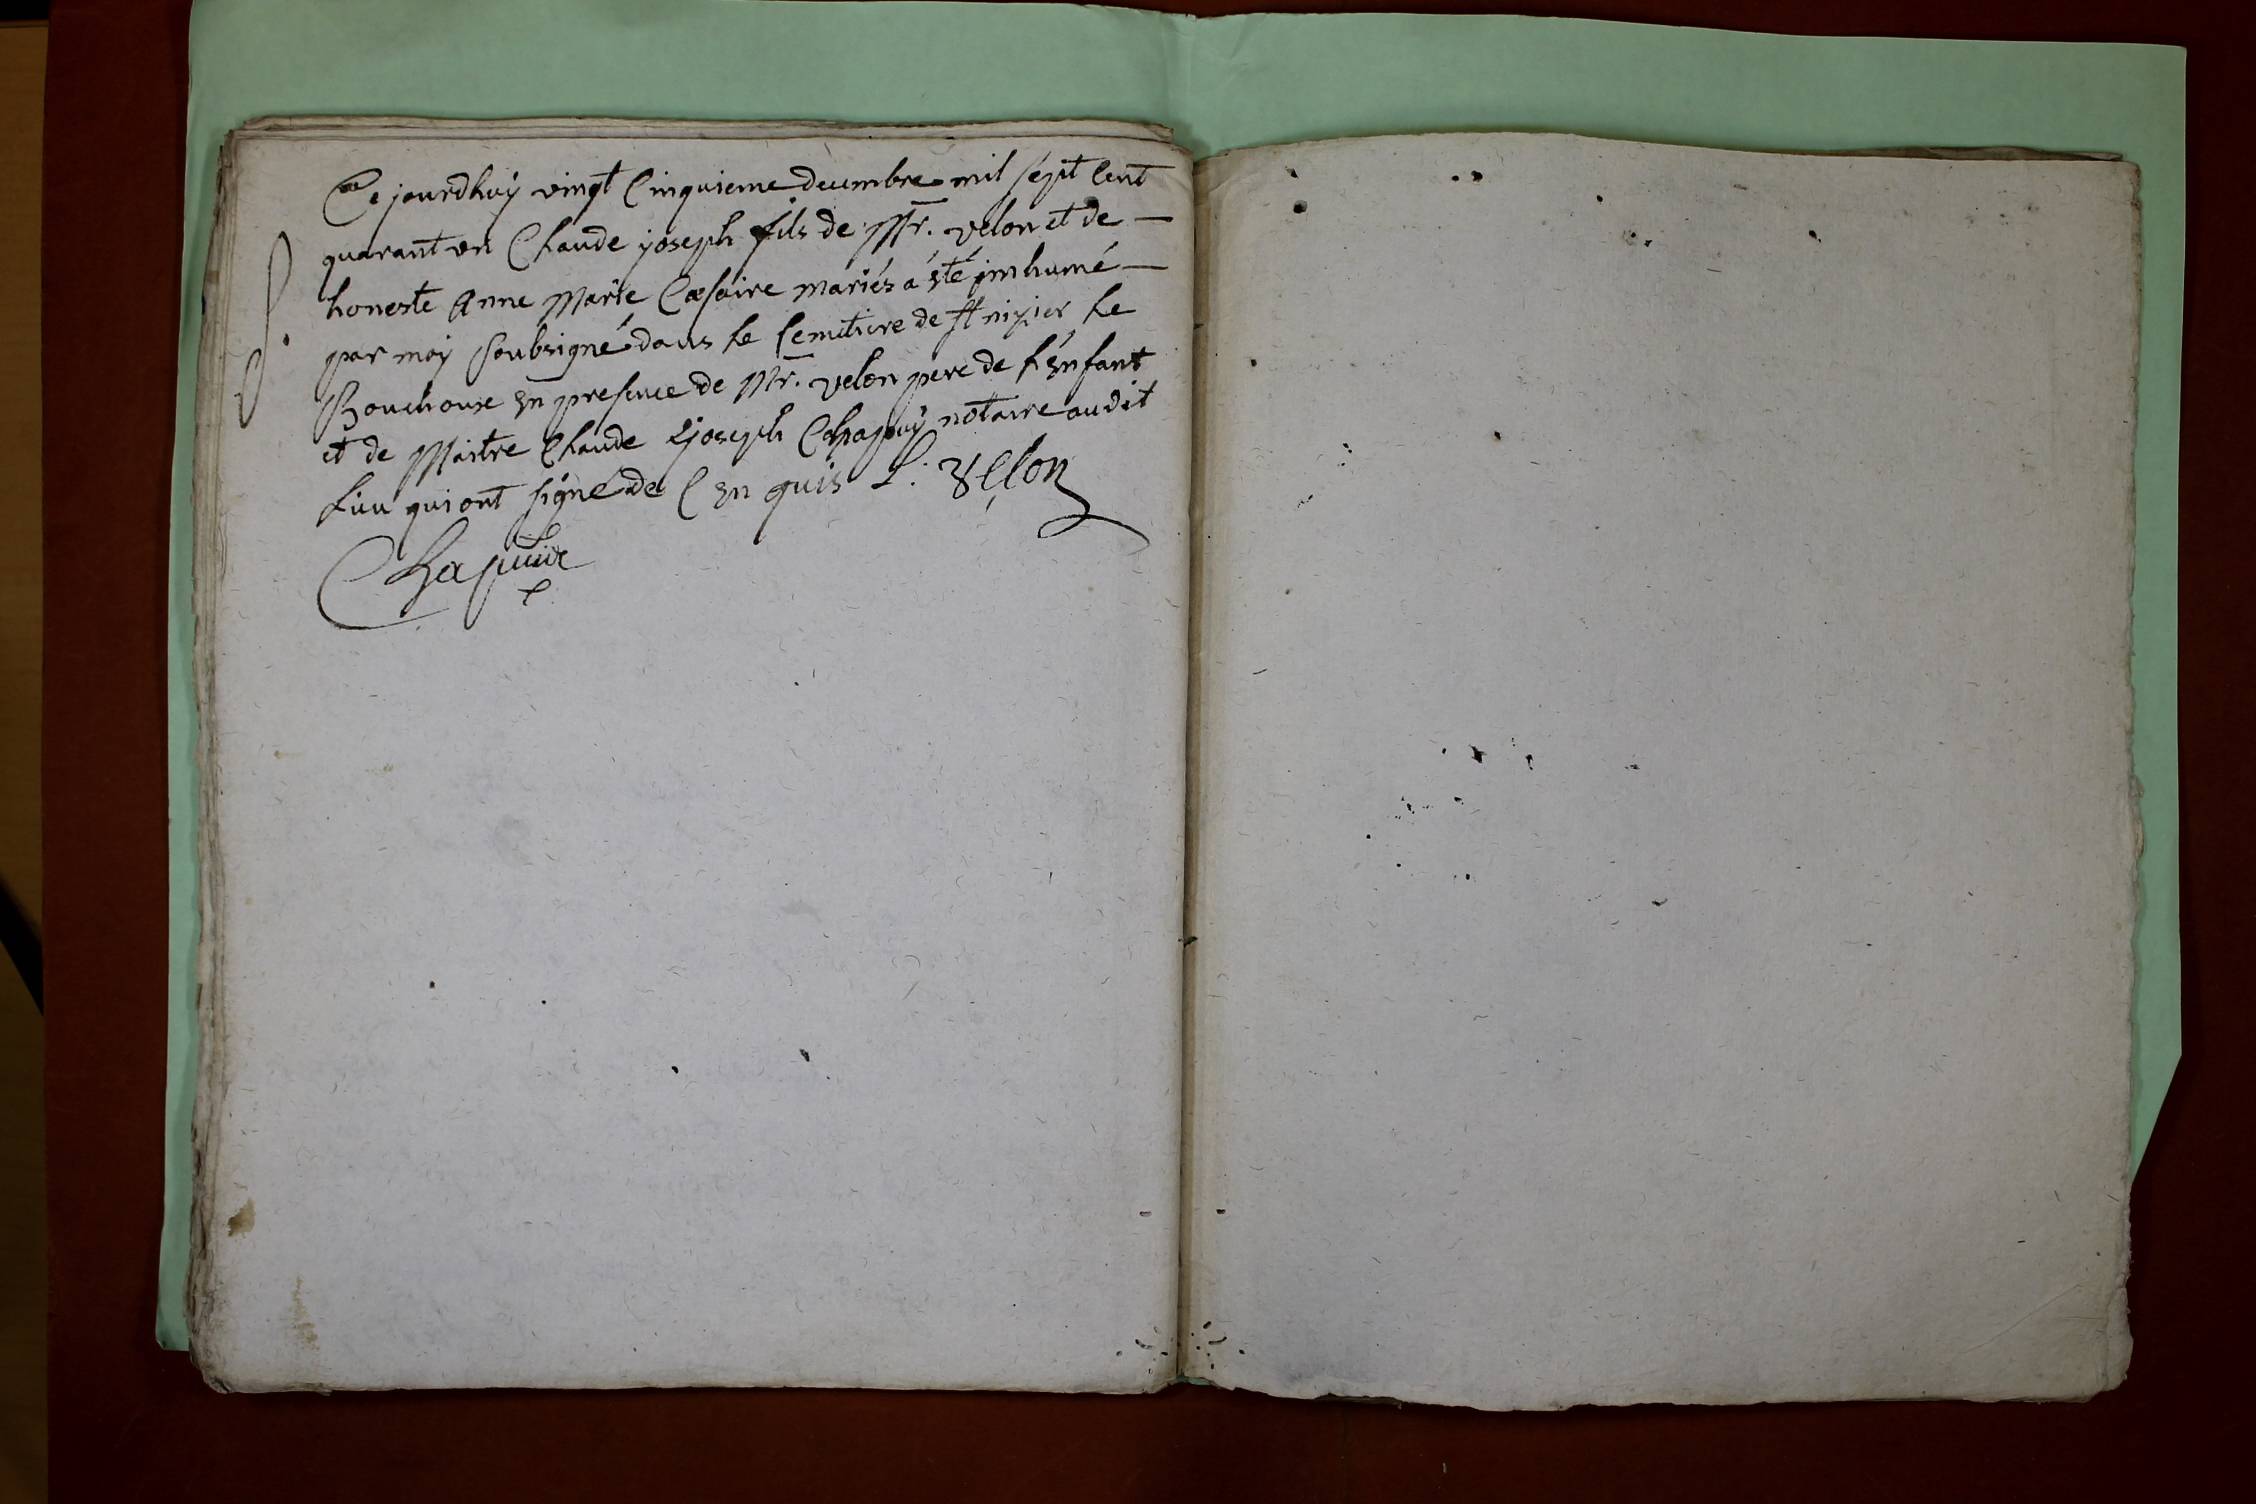 Ce jourdhuÿ vingt Cinquieme decembre mil sépt Cent
quarant un Claude joseph fils de Mr. velon et de —
honeste Anne Marie Cæsaire mariés a été jnhumé —
par moÿ soubsigné dans le Cemetiere de st nizier le
Bouchoux En presence de Mr. velon pere de l'Enfant
et de Maitre Claude Joseph Chapuÿ notaire audit
Lieu qui ont signé de C En quis L. Velon
Chapuis